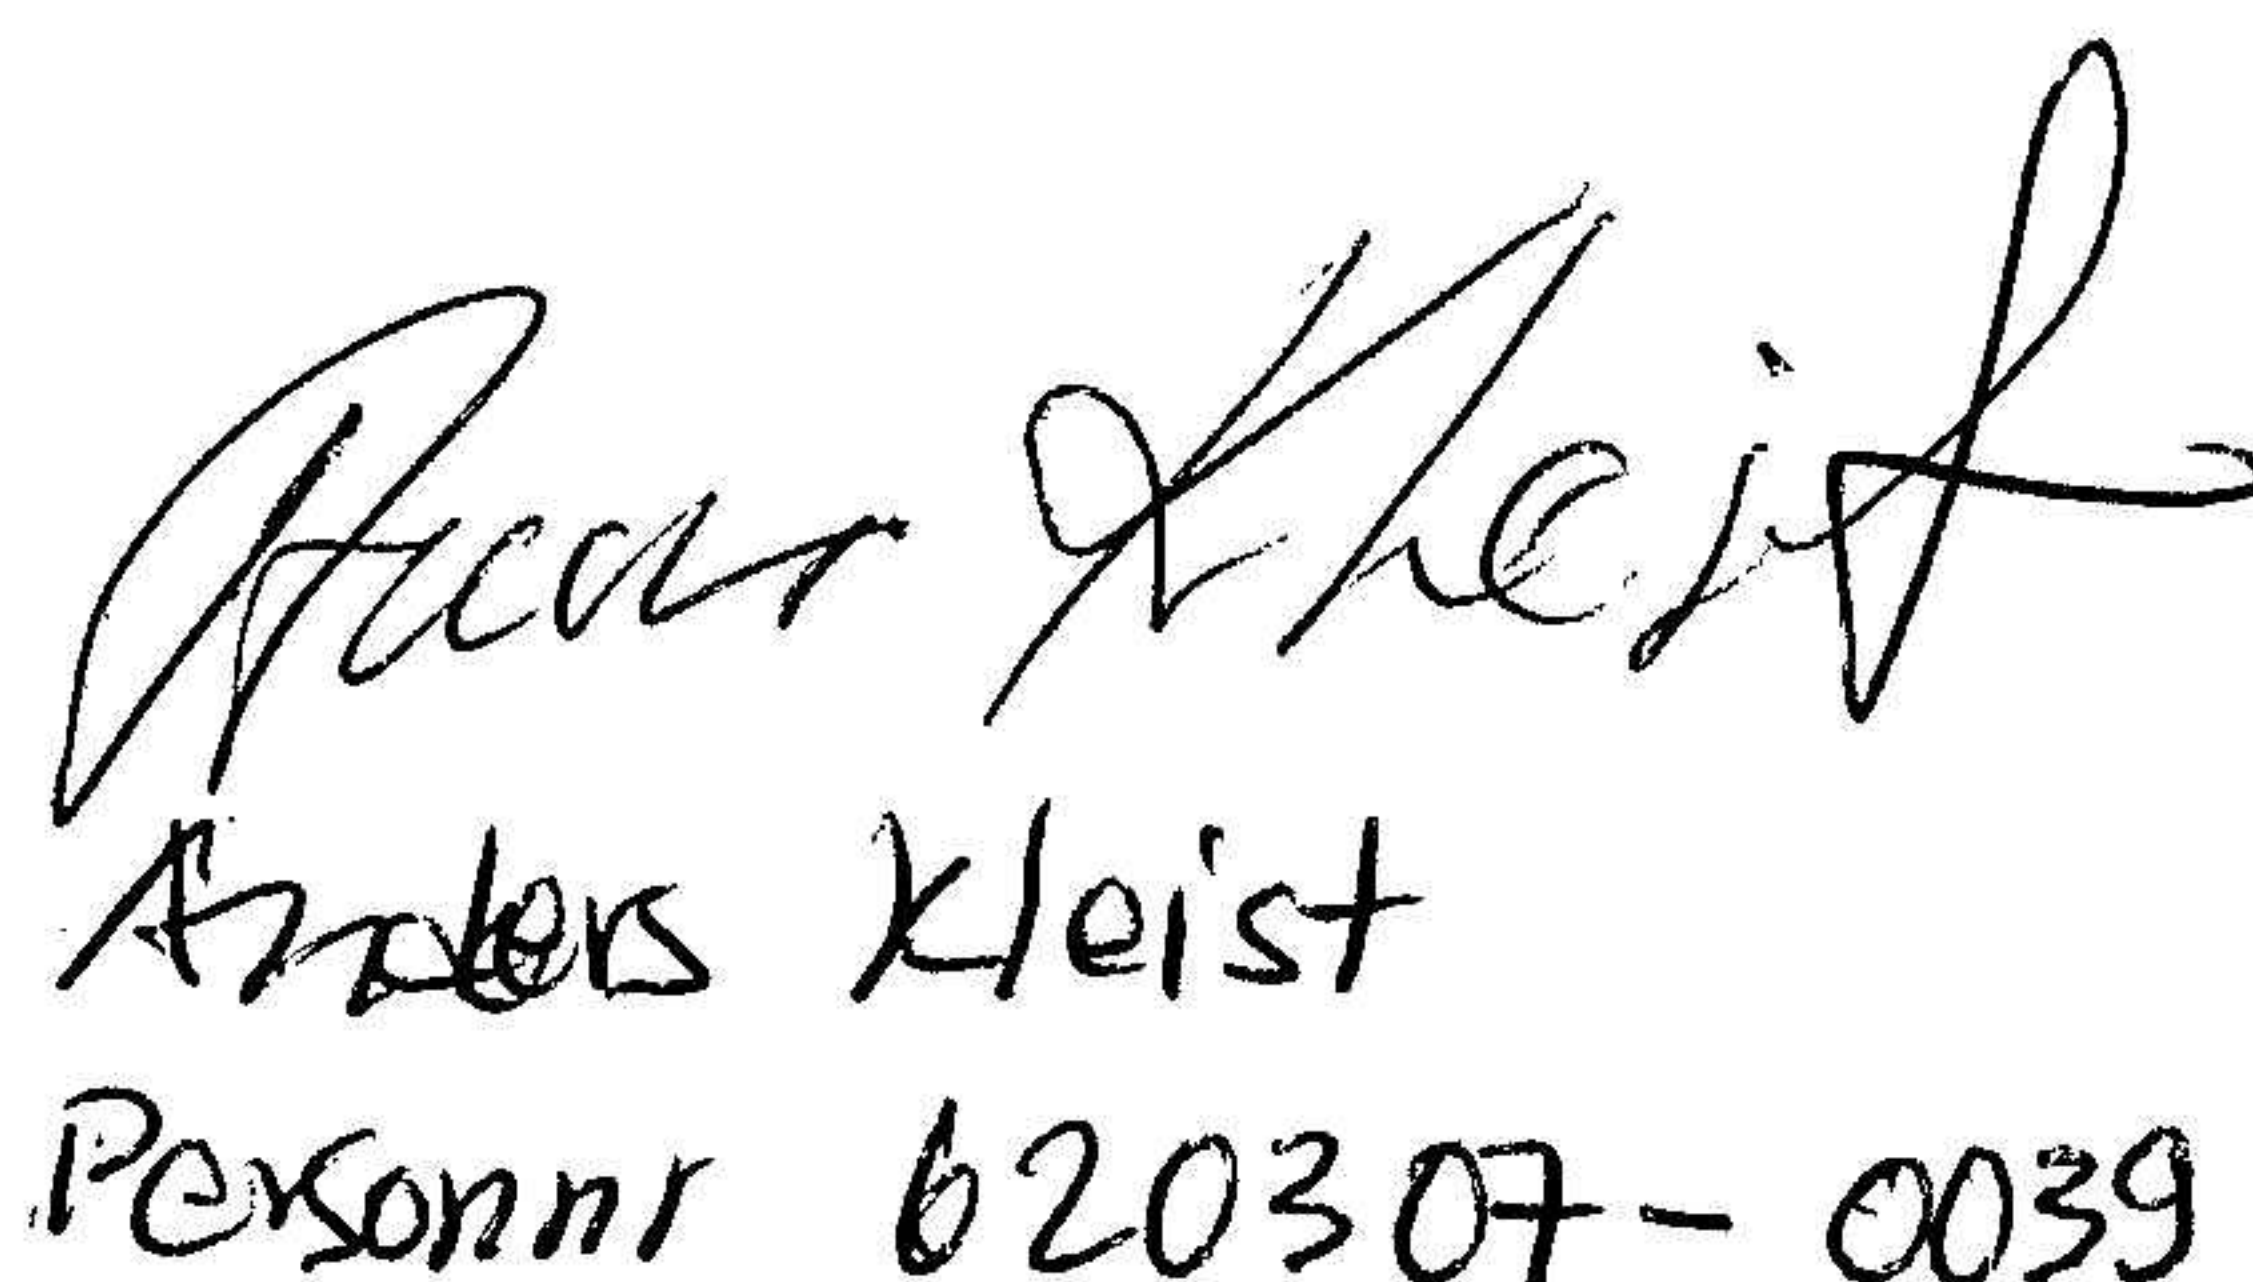 Anders Kleist
Anders Kleist
Personnr 620307-0039